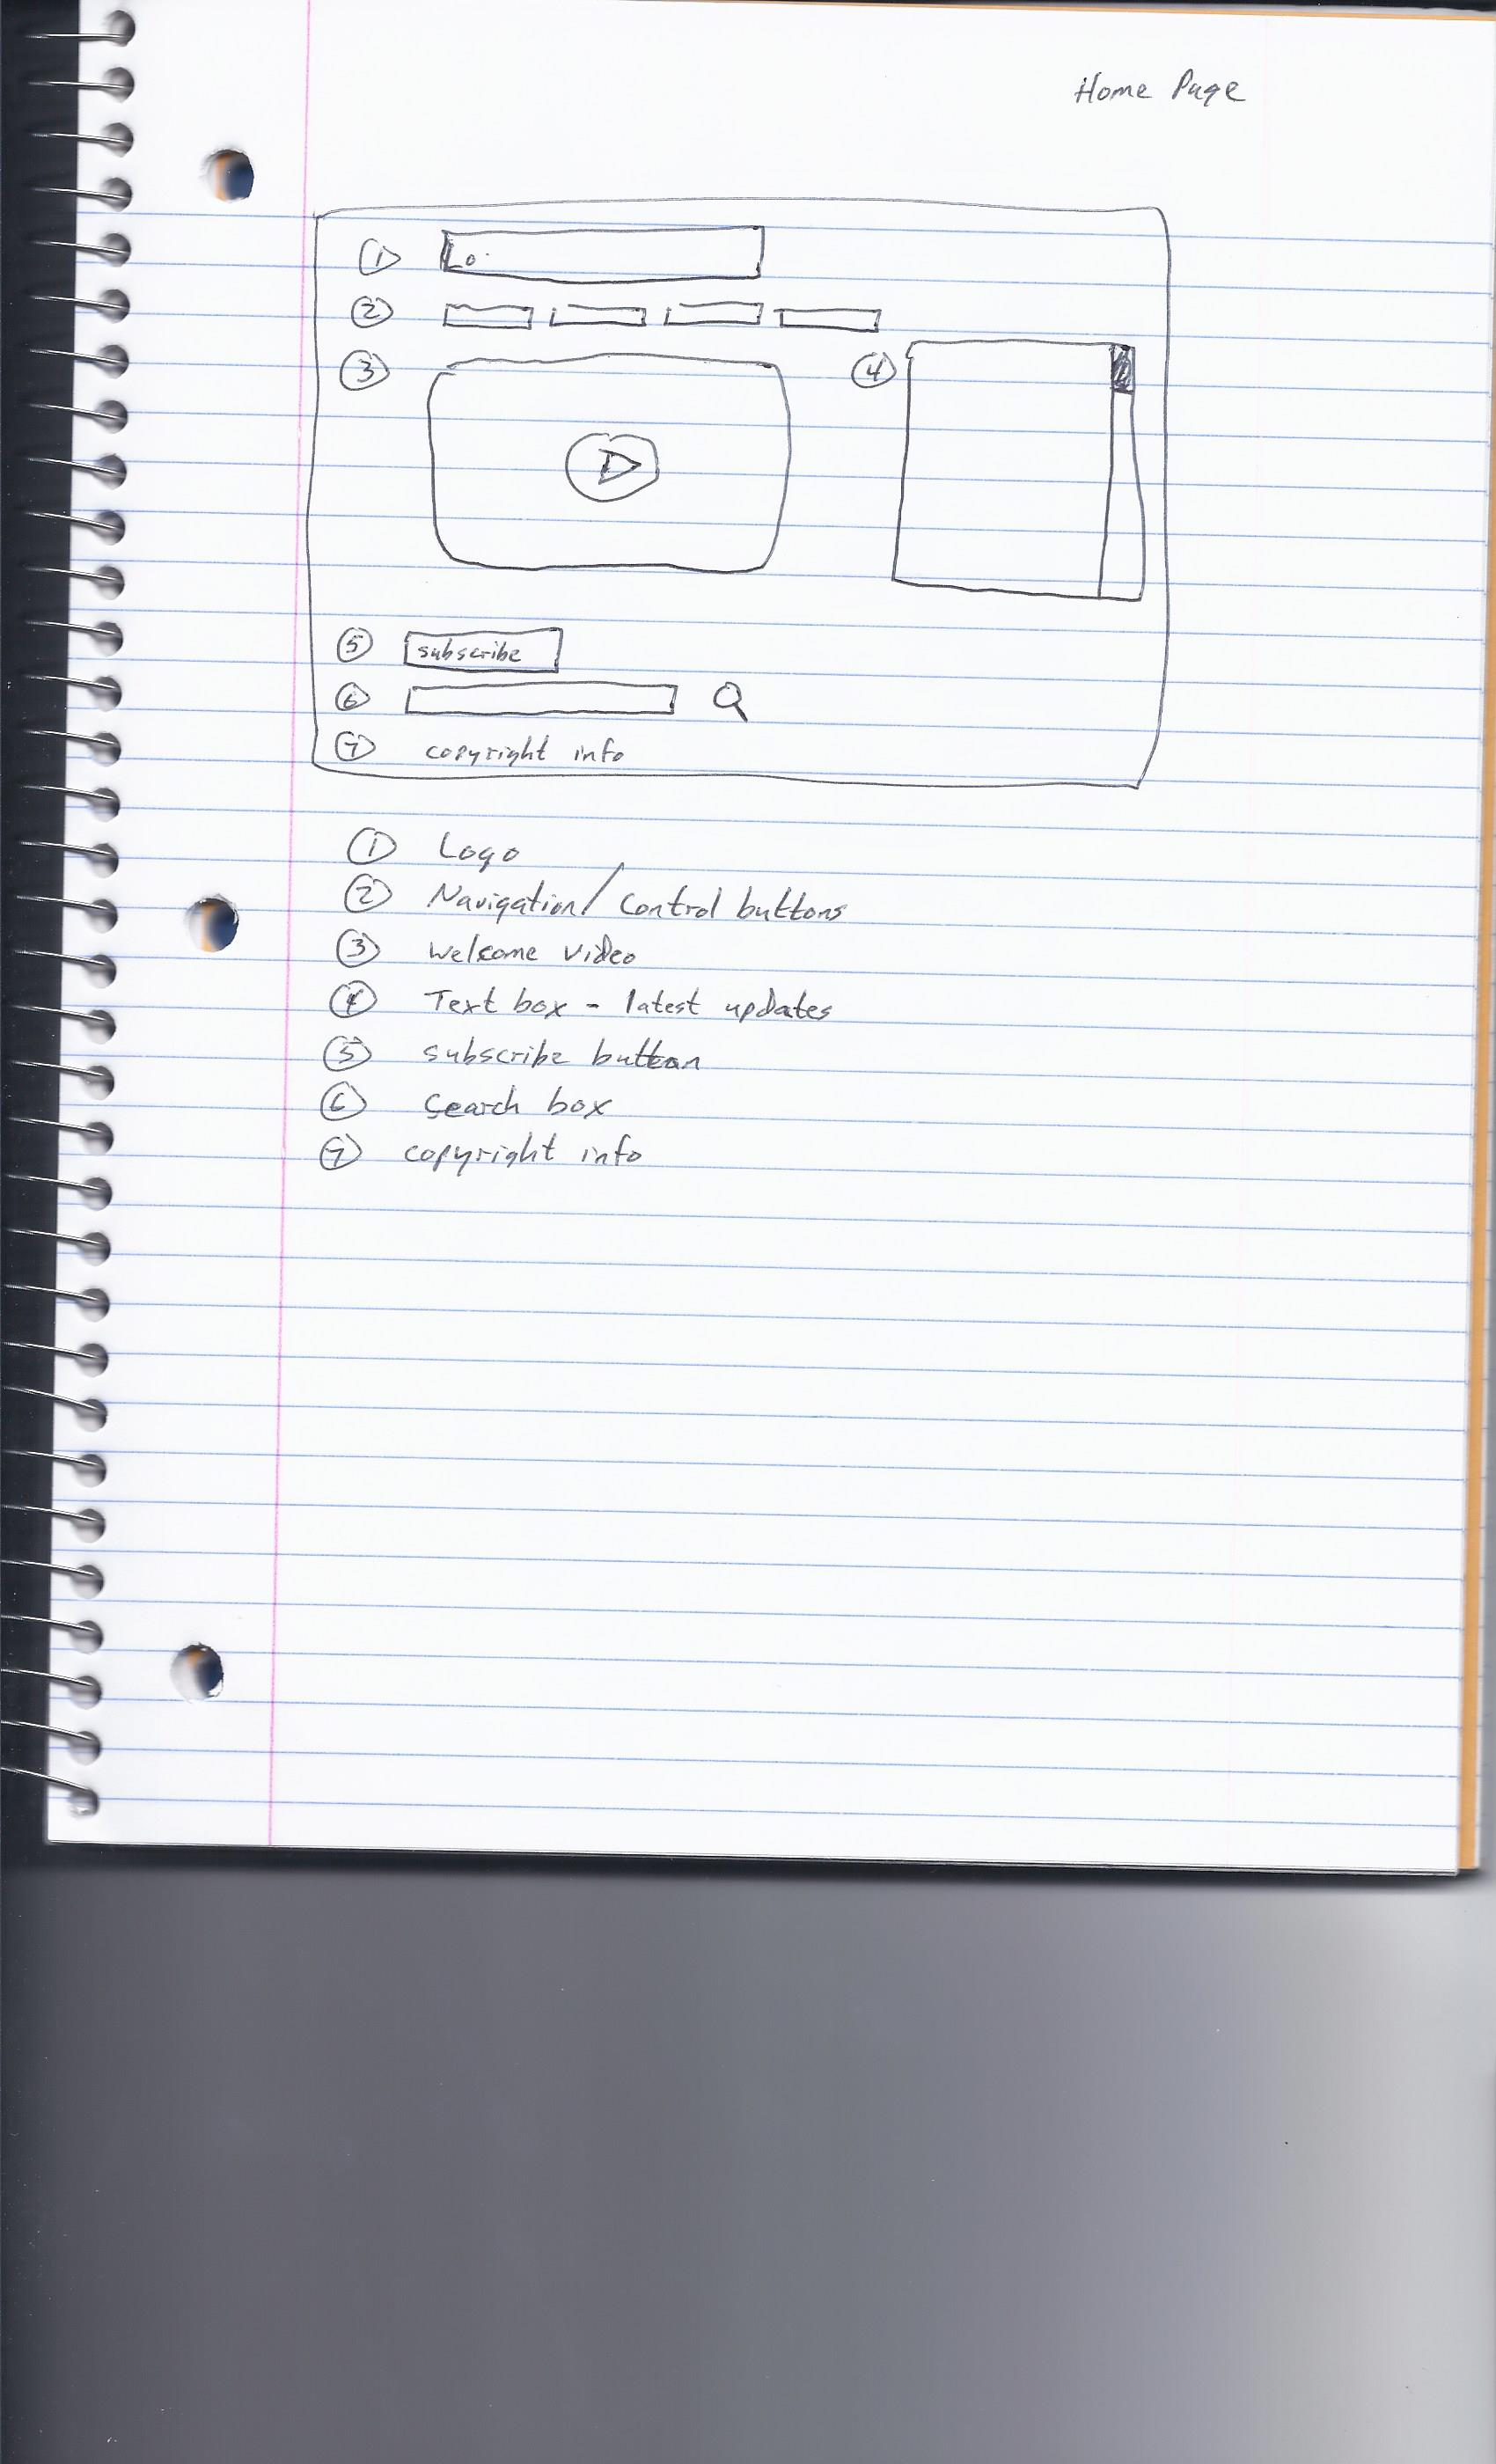 Home Page
1 Lo
2
3 4
5 subscribe
6
7 copyright info
1 Logo
2 Navigation/Control buttons
3 welcome video
4 Text box - latest updates
5 subscribe button
6 search box
7 copyright info